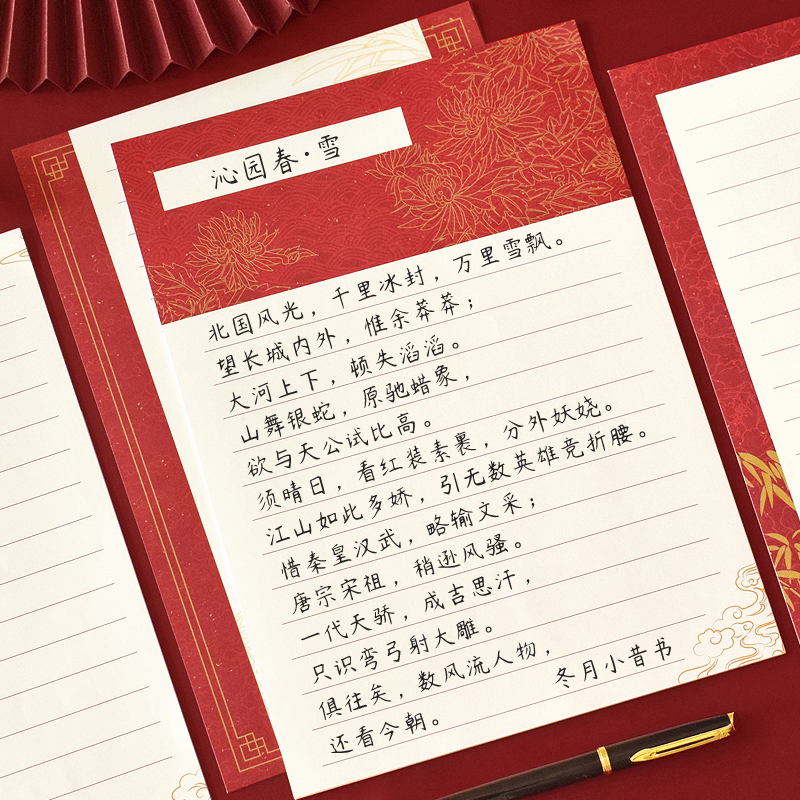 沁园春·雪
北国风光，千里冰封，万里雪飘。
望长城内外，惟余莽莽；
大河上下，顿失滔滔。
山舞银蛇，原驰蜡象，
欲与天公试比高。
须晴日，看红装素裹，分外妖娆。
江山如此多娇，引无数英雄竞折腰。
惜秦皇汉武，略输文采；
唐宗宋祖，稍逊风骚。
一代天骄，成吉思汗，
只识弯弓射大雕。
俱往矣，数风流人物，
还看今朝。
冬月小昔书